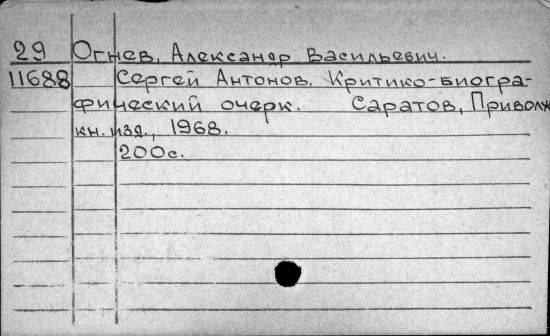 29 Огнев, Александр Васильевич.
11688 Сергей Антонов. Критико-биогра-
фический очерк. Саратов, Приволж
кн. изд., 1968.
200с.